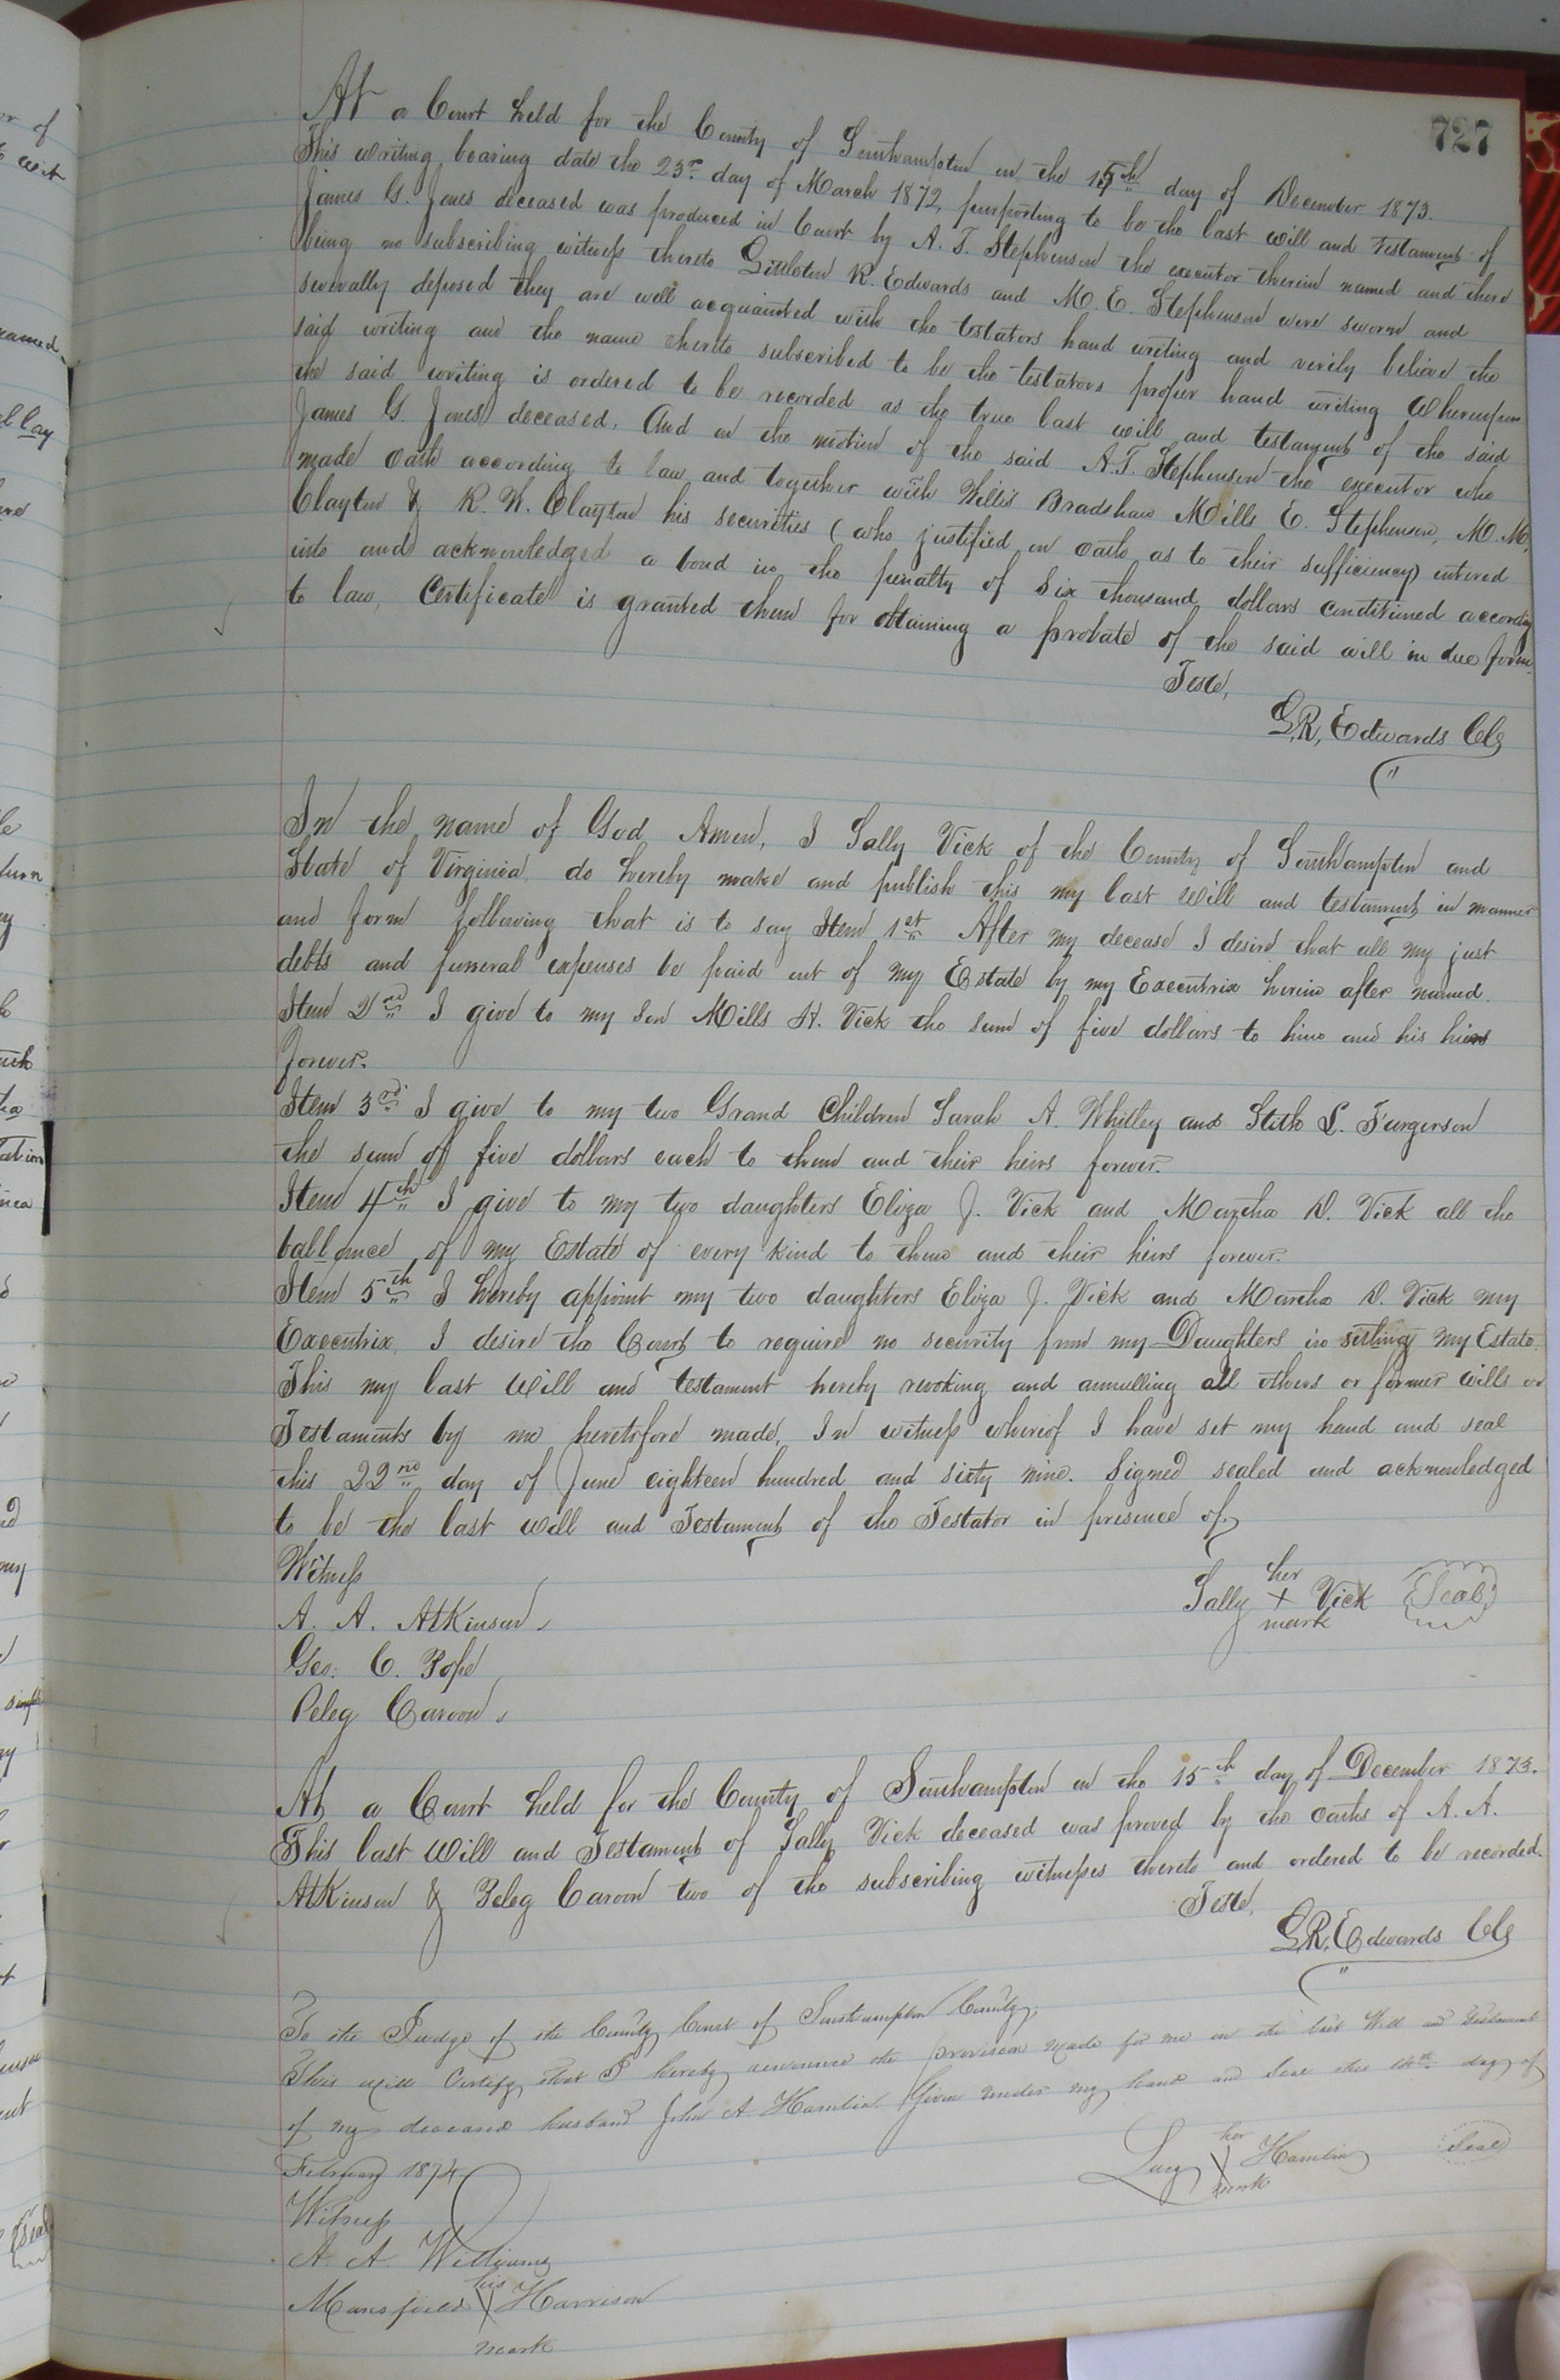 727
At a Court held for the County of Southampton on the 15th day of December 1873.
This writing bearing date the 23rd day of March 1872, purporting to be the last will and testament of
James G. Jones deceased was produced in Court by A. T. Stephenson the executor therein named and there
being no subscribing witness thereto Littleton R. Edwards and M. E. Stephenson were sworn and
severally deposed they are well acquainted with the testators hand writing and verily believe the
said writing and the name thereto subscribed to be the testators proper hand writing Whereupon
the said writing is ordered to be recorded as the true last will and testament of the said
James G. Jones deceased. And on the motion of the said A. T. Stephenson the executor who
made oath according to law and together with Willis Bradshaw Mills E. Stephenson, M. M.
Clayton & R. W. Clayton his securities (who justified on oath as to their sufficiency) entered
into and acknowledged a bond in the penalty of six thousand dollars conditioned according
to law, Certificate is granted them for obtaining a probate of the said will in due form.
Teste,
L. R. Edwards Clk
In the name of God Amen, I Sally Vick of the County of Southampton and
State of Virginia do hereby make and publish this my last Will and testament in manner
and form following that is to say Item 1st After my decease I desire that all my just
debts and funeral expenses be paid out of my Estate by my Executrix herein after named.
Item 2nd I give to my son Mills H. Vick the sum of five dollars to him and his hiers
forever.
Item 3rd I give to my two Grand Children Sarah A. Whitley and Stith L. Furgerson
the sum of five dollars each to them and their heirs forever.
Item 4th I give to my two daughters Eliza J. Vick and Martha D. Vick all the
ballance of my Estate of every kind to them and their heirs forever.
Item 5th I hereby appoint my two daughters Eliza J. Vick and Martha D. Vick my
Executrix, I desire the Court to require no security from my Daughters in setling my Estate.
This my last Will and testament hereby revoking and annulling all others or former wills or
Testaments by me heretofore made, In witness whereof I have set my hand and seal
this 22nd day of June eighteen hundred and sixty nine. Signed sealed and acknowledged
to be the last will and Testament of the Testator in presence of,
Witness
her
Sally x Vick (Seal)
mark
A. A. Atkinson,
Geo. C. Pope
Peleg Carson,
At a Court held for the County of Southampton on the 15th day of December 1873.
This last Will and Testament of Sally Vick deceased was proved by the oaths of A. A.
Atkinson & Peleg Carson two of the subscribing witnesses thereto and ordered to be recorded.
Teste,
L. R. Edwards Clk
To the Judge of the County Court of Southampton County:
This will Certify that I hereby renounce the provision made for me in the last Will and Testament
of my deceased husband John A. Hamlin. Given under my hand and Seal this day of
February 1874
her
Lucy X Hamlin Seal
mark
Witness
A. A. Williams
his
Mansfield X Harrison
mark